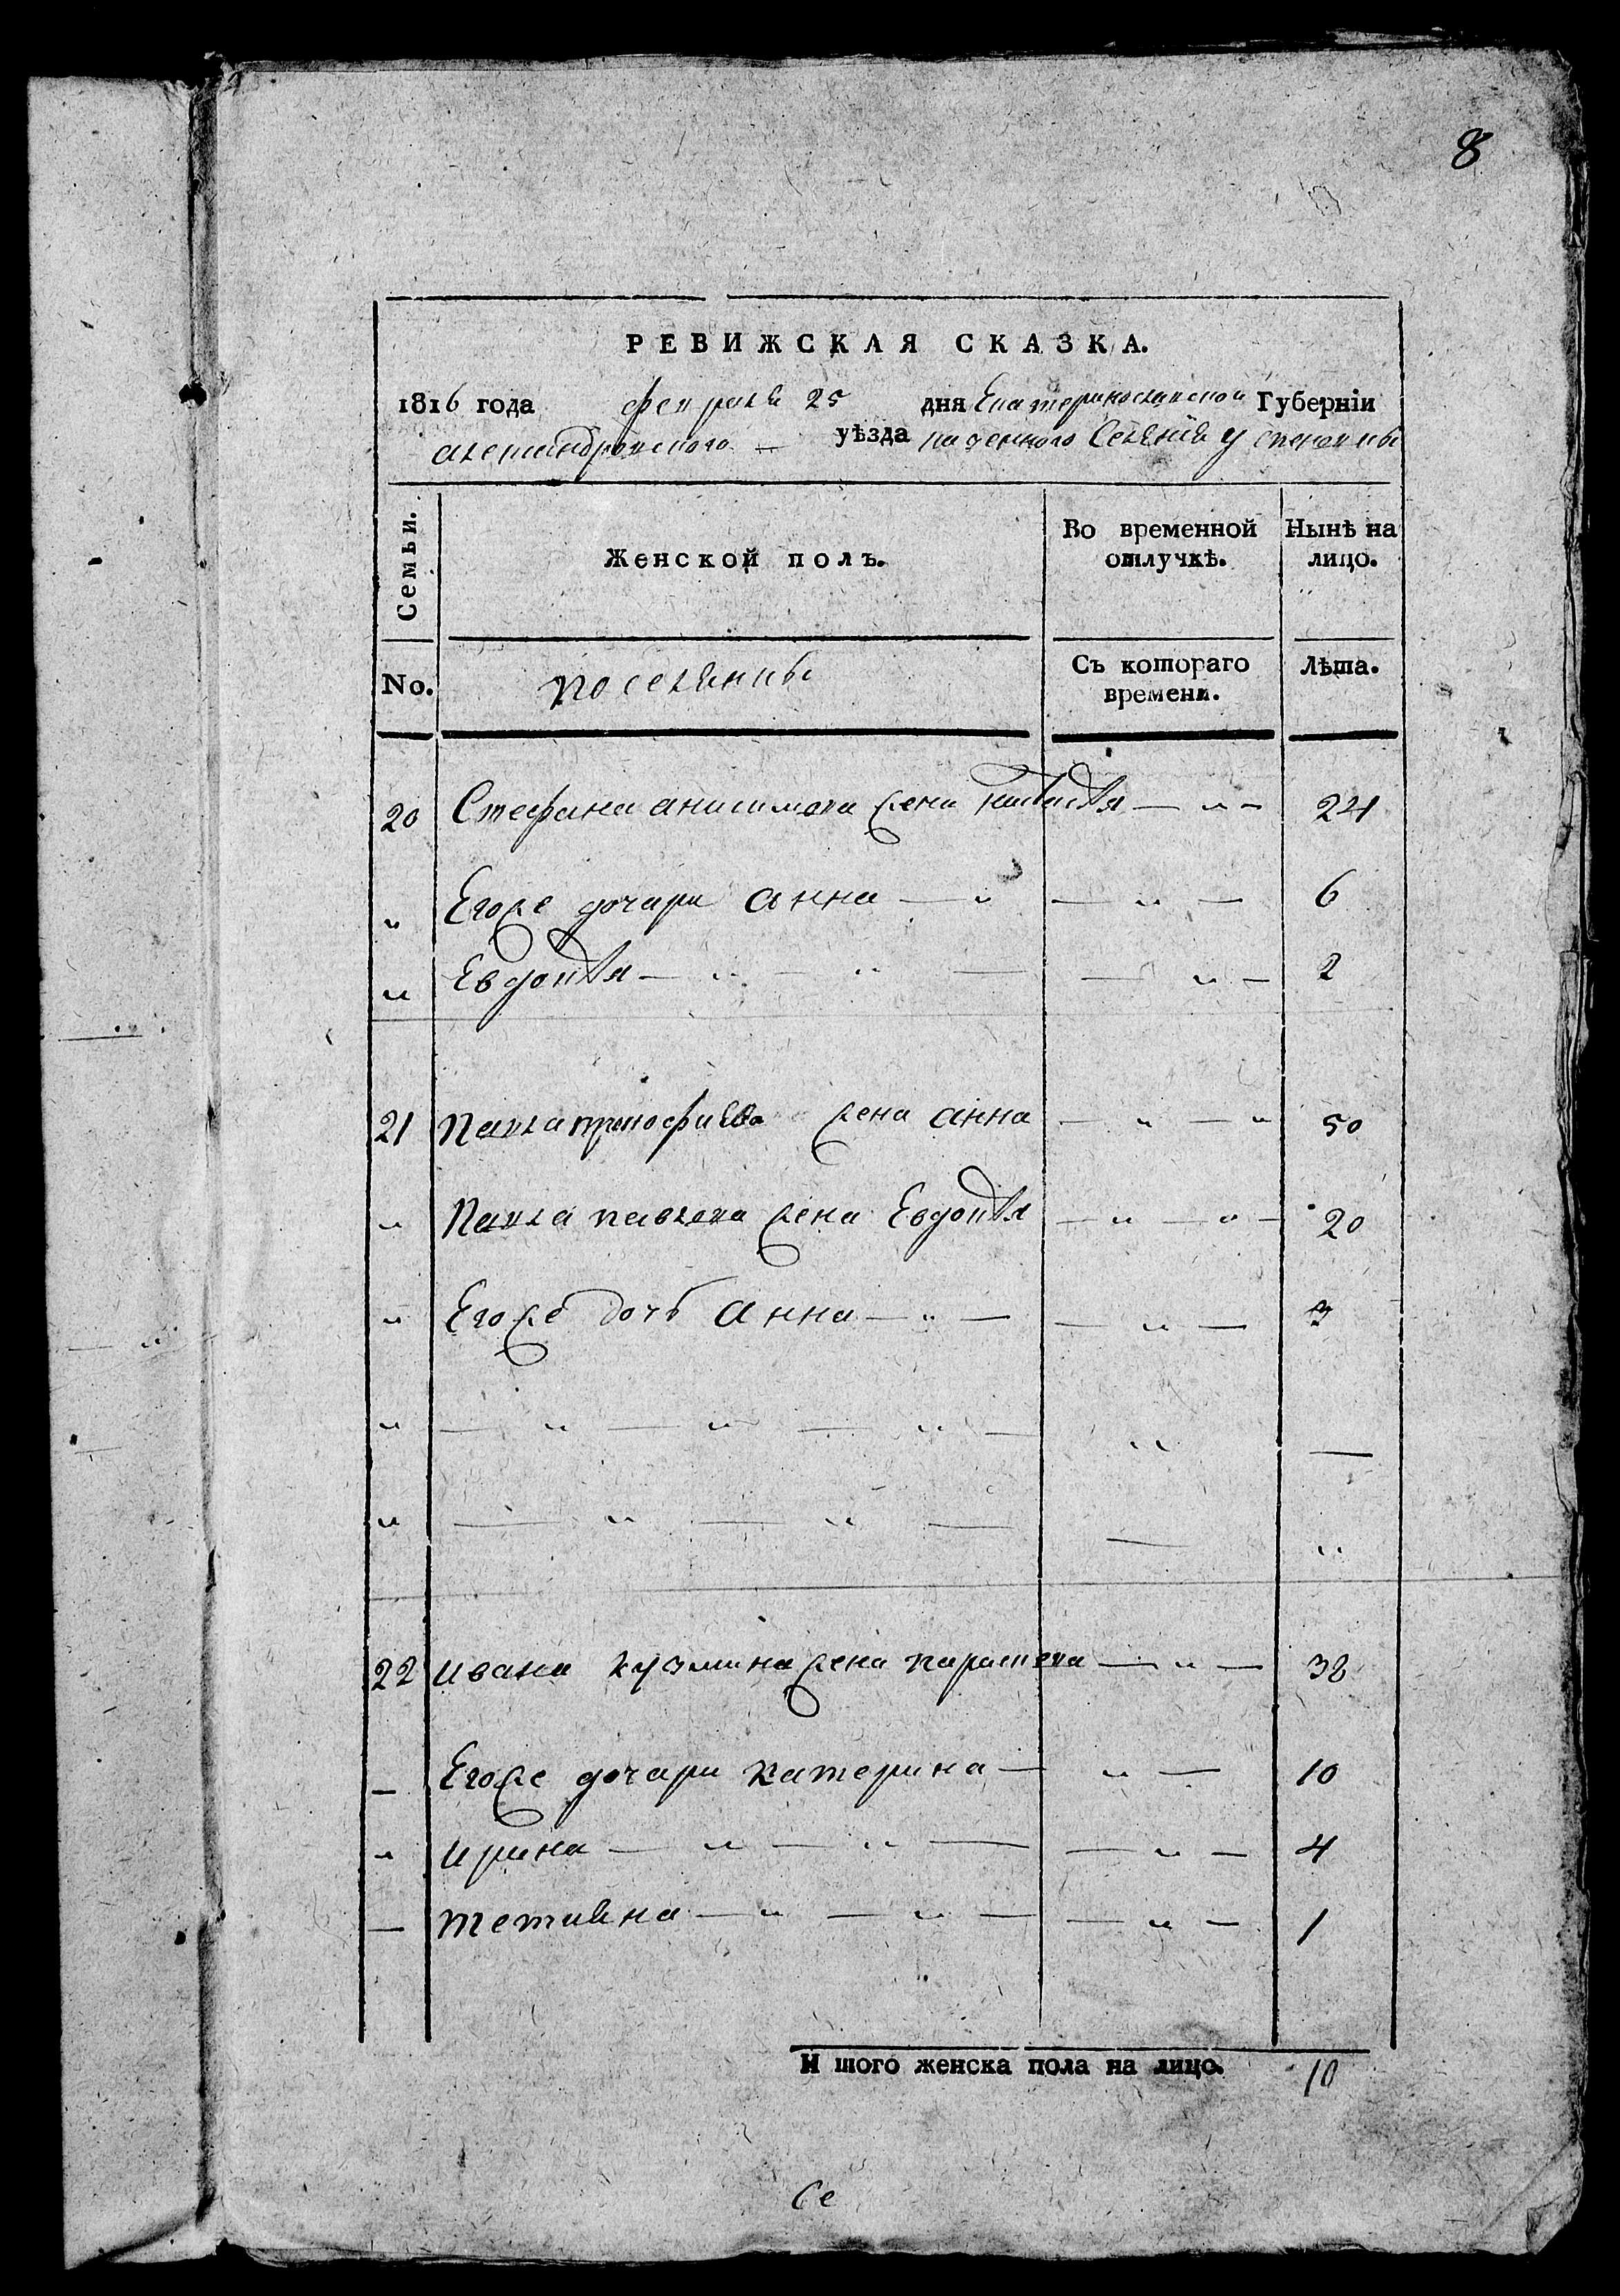 8
РЕВИЖСКАЯ СКАЗКА.
1816 года февраля 25 дня Екатеринославской Губерніи
александровского уѣзда казенного Селения успеновки
Семьи. Женской полъ. Во временной отлучкѣ. Нынѣ на лицо.
No. поселянки Съ котораго времени. Лѣта.
20 Стефана анисимова жена — „ — 24
„ Егоже дочери анна — „ — „ — 6
„ Евдокия — „ — „ — — „ — 2
21 Павла прокофиева жена анна — „ — „ 50
„ Павла павлова жена Евдокия — „ — „ — 20
„ Егоже дочь анна — „ — — „ — 3
„ — „ — „ — „ — „ —
„ — „ — „ — — „
22 ивана кузмина жена параскева — „ — 38
— Егоже дочери катерина — „ — 10
„ ирина — „ — „ — — „ — 4
— тетиана — „ — „ — — „ — 1
Итого женска пола на лицо. 10
Се